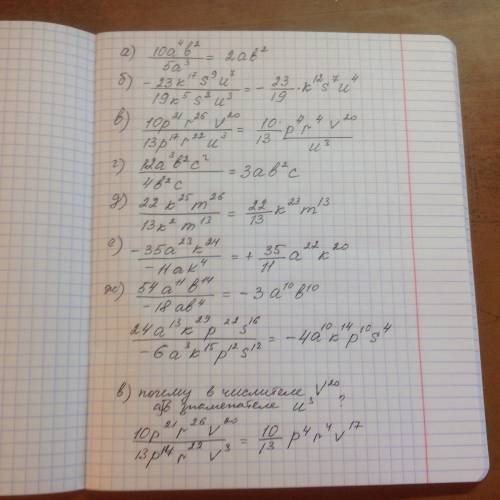 а) 10a⁴b²/5a³ = 2ab²
б) -23k¹⁷s⁹u⁷/19k⁵s²u³ = -23/19·k¹²s⁷u⁴
в) 10p²¹r²⁶v²⁰/13p¹⁷r²²u³ = 10/13 p⁴r⁴v²⁰/u³
г) 12a³b²c²/4b²c = 3ab²c
д) 22k²⁵m²⁶/13k²m¹³ = 22/13 k²³m¹³
е) -35a²³k²⁴/-11ak⁴ = +35/11 a²²k²⁰
ж) 54a¹¹b¹⁴/-18ab⁴ = -3a¹⁰b¹⁰
24a¹³k²⁹p²²s¹⁶/-6a³k¹⁵p¹²s¹² = -4a¹⁰k¹⁴p¹⁰s⁴
в) почему в числителе V²⁰
а в знаменателе u³ ?
10p²¹r²⁶v²⁰/13p¹⁷r²²v³ = 10/13 p⁴r⁴v¹⁷